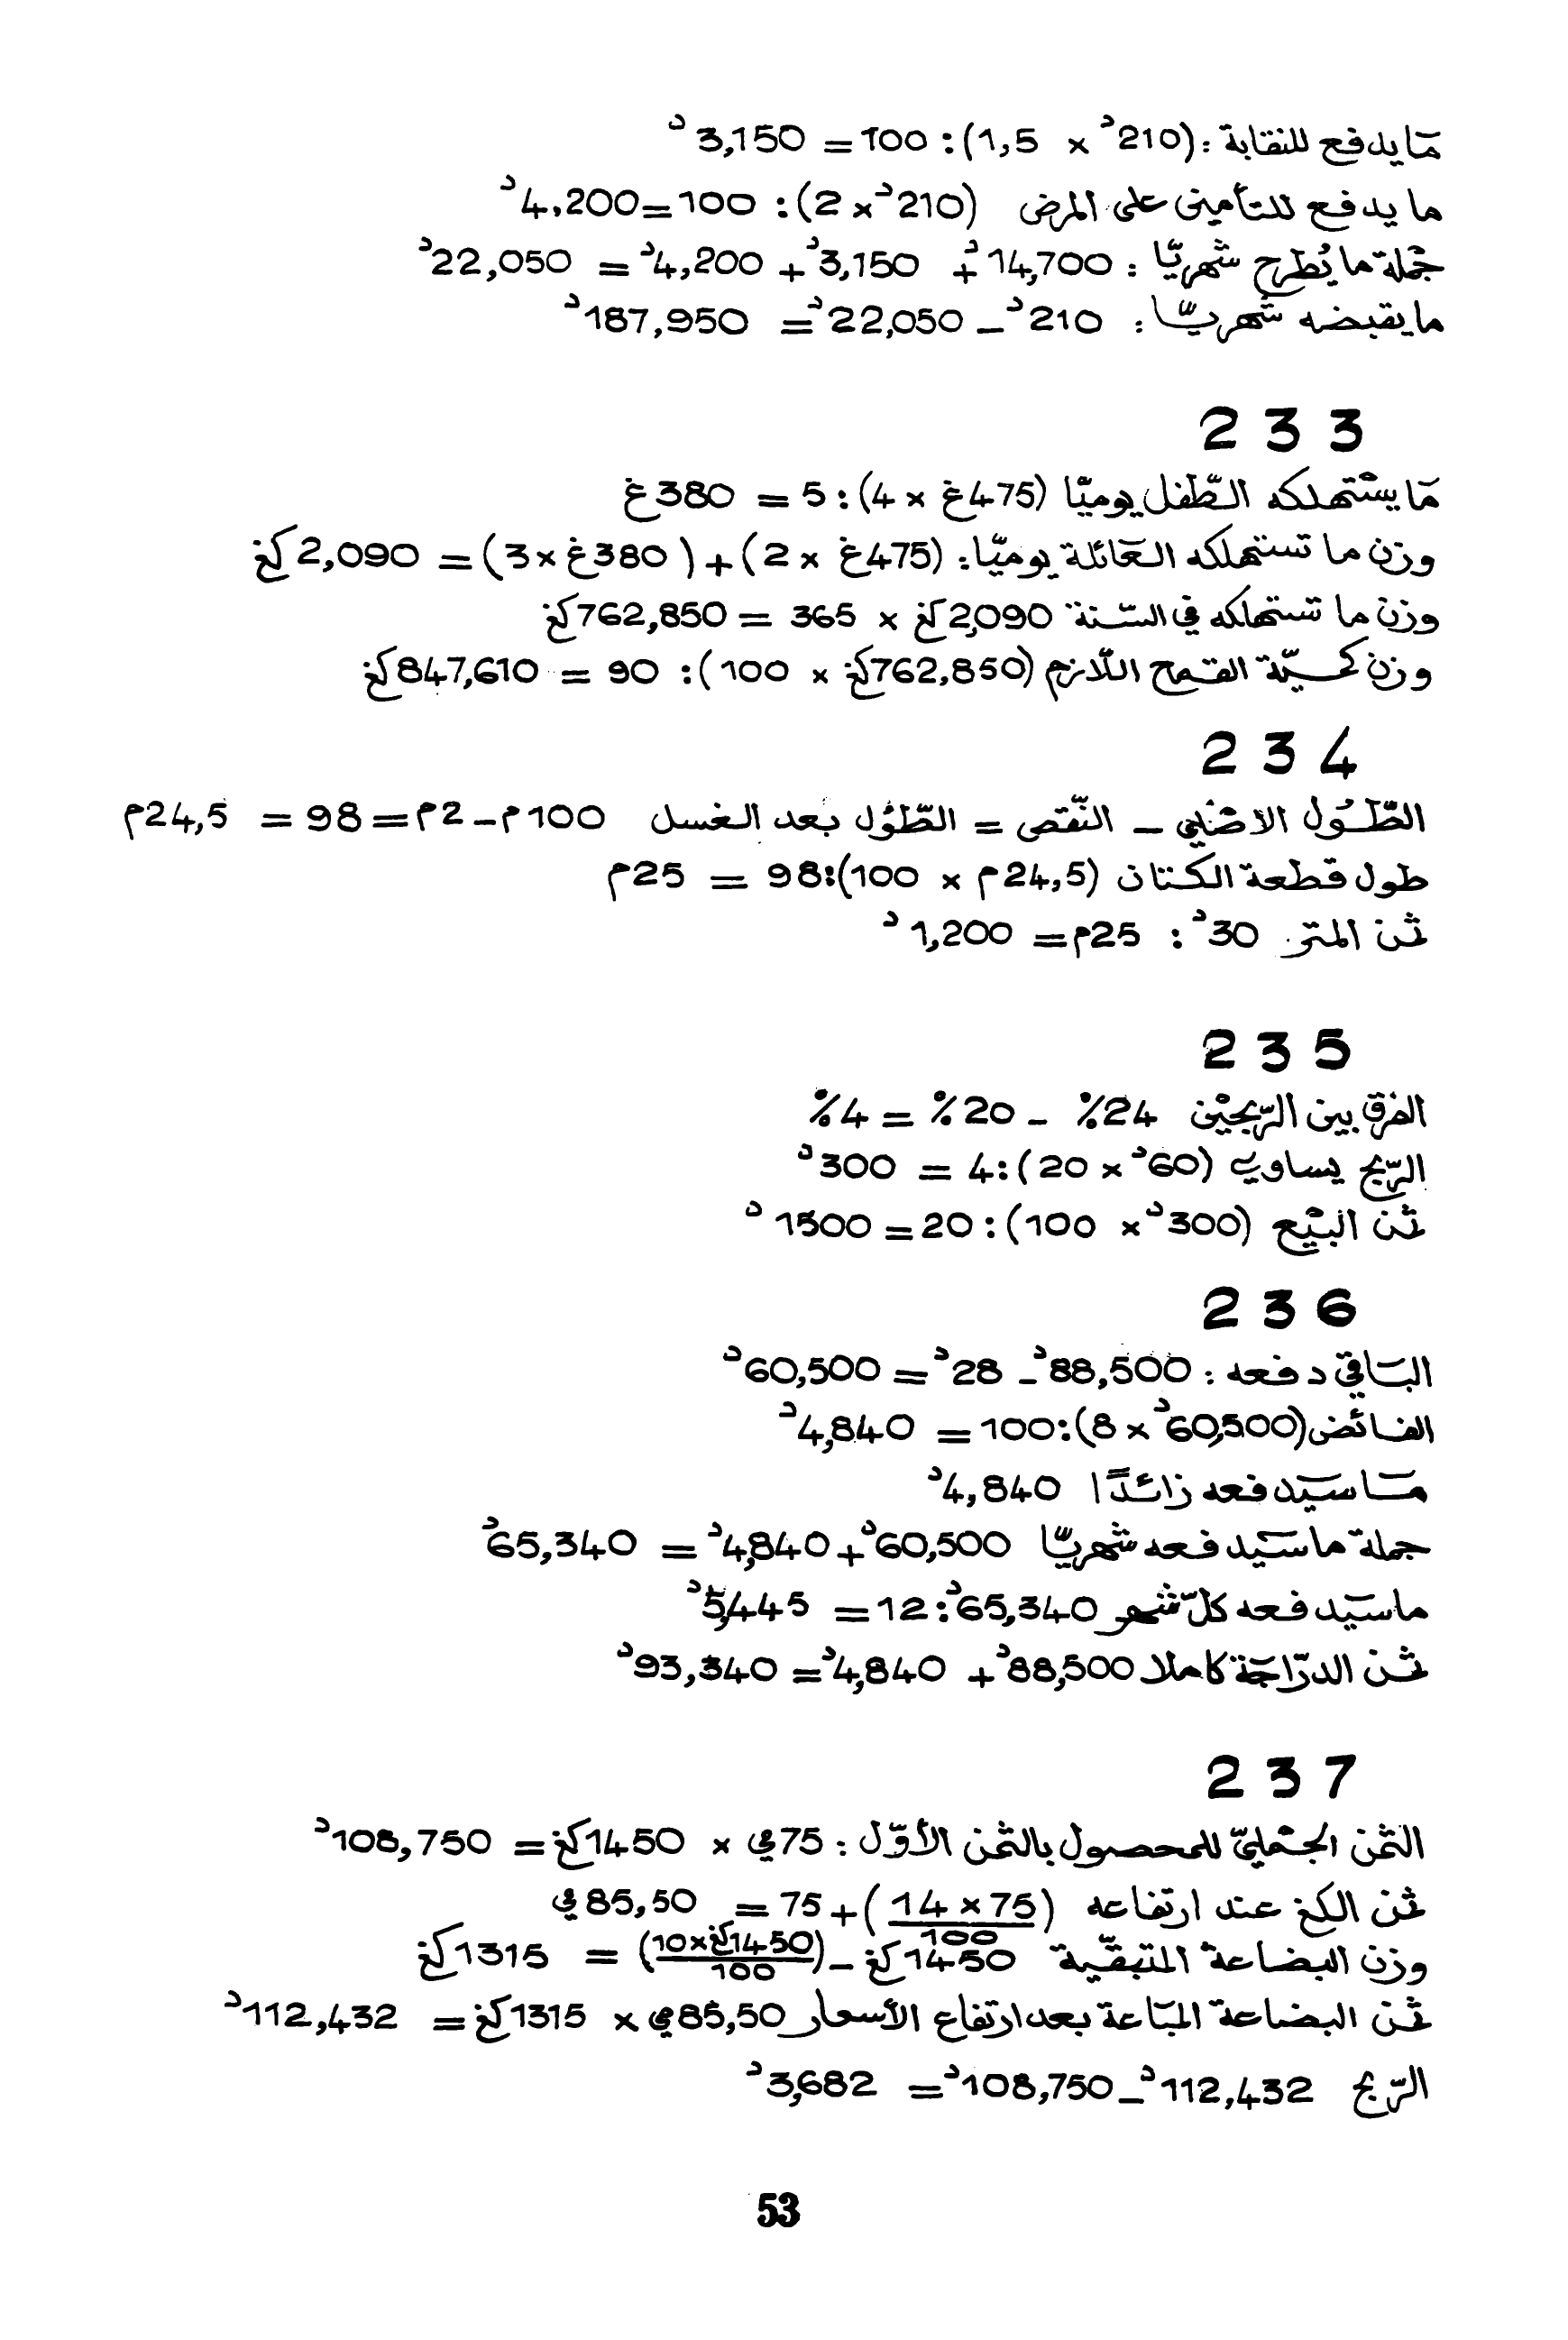 ما يدفع للنقابة : (210د × 1,5) : 100 = 3,150د
ما يدفع للتأمين على المرض (210د × 2) : 100 = 4,200د
جملة ما يُطرح شهريّا : 14,700د + 3,150د + 4,200د = 22,050د
ما يقبضه شهريّا : 210د – 22,050د = 187,950د
233
ما يستهلكه الطّفل يوميّا (475غ × 4) : 5 = 380غ
وزن ما تستهلكه العائلة يوميّا : (475غ × 2) + (380غ × 3) = 2,090كغ
وزن ما تستهلكه في السّنة 2,090كغ × 365 = 762,850كغ
وزن كميّة القمح اللّازم (762,850كغ × 100) : 90 = 847,610كغ
234
الطّول الاصْلي – النّقص = الطّول بعد الغسل 100م – 2م = 98 = 24,5م
طول قطعة الكتان (24,5م × 100) : 98 = 25م
ثمن المتر 30د : 25م = 1,200د
235
الفرق بين الرّبحيْن 24% – 20% = 4%
الرّبح يساوي (60د × 20) : 4 = 300د
ثمن البيْع (300د × 100) : 20 = 1500د
236
الباقي دفعه : 88,500د – 28د = 60,500د
الفائض (60,500د × 8) : 100 = 4,840د
ما سيدفعه زائدًا 4,840د
جملة ما سيدفعه شهريّا 60,500د + 4,840د = 65,340د
ما سيدفعه كلّ شهر 65,340د : 12 = 5,445د
ثمن الدرّاجة كاملا 88,500د + 4,840د = 93,340د
237
الثّمن الجمْليّ للمحصول بالثّمن الأوّل : 75ي × 1450كغ = 108,750د
ثمن الكغ عند ارتفاعه (14 × 75 / 100) + 75 = 85,50ي
وزن البضاعة المتبقّية 1450كغ – (1450كغ × 10 / 100) = 1315كغ
ثمن البضاعة المباعة بعد ارتفاع الأسعار 85,50ي × 1315كغ = 112,432د
الرّبح 112,432د – 108,750د = 3,682د
53